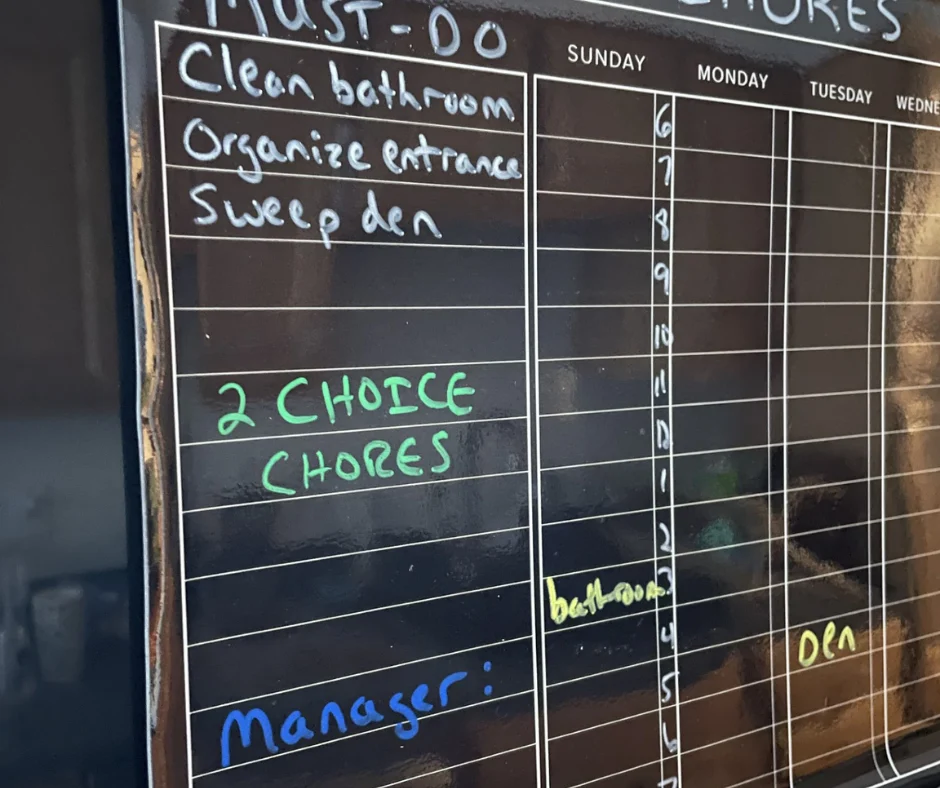 MUST-DO
CHORES
SUNDAY
MONDAY
TUESDAY
WEDNE
Clean bathroom
Organize entrance
Sweep den
2 CHOICE
CHORES
Manager:
6
7
8
9
10
11
12
1
2
bathroom 3
4 Den
5
6
7